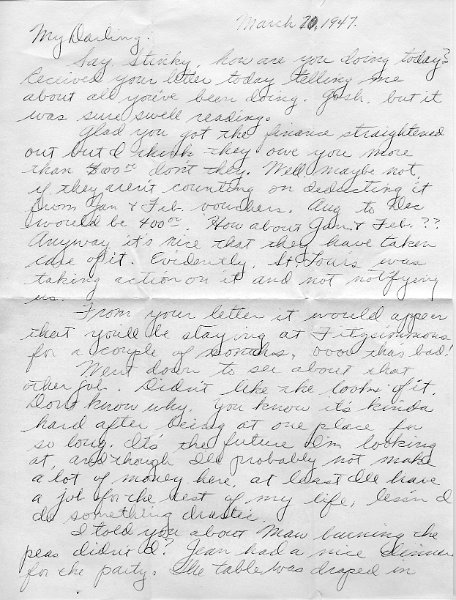 March 20, 1947.
My Darling:
Say, stinky, how are you doing today?
Received your letter today telling me
about all you've been doing. Gosh, but it
was sure swell reading.
Glad you got the finance straightened
out but I think they owe you more
than $400.00 don't they. Well maybe not,
if they aren't counting on deducting it
from Jan & Feb. vouchers. Aug to Dec
would be 400.00. How about Jan & Feb.??
Anyway it's nice that they have taken
care of it. Evidently, St. Louis was
taking action on it and not notifying
us.
From your letter it would appear
that you'll be staying at Fitzsimmons
for a couple of months, ooo thas bad!
Went down to see about that
other job. Didn't like the looks of it.
Don't know why. You know it's kinda
hard after being at one place for
so long. It's the future I'm looking
at, and though I'll probably not make
a lot of money here, at least I'll have
a job for the rest of my life, less'n I
do something drastic.
I told you about Maw burning the
peas didn't I? Jean had a nice dinner
for the party. The table was draped in